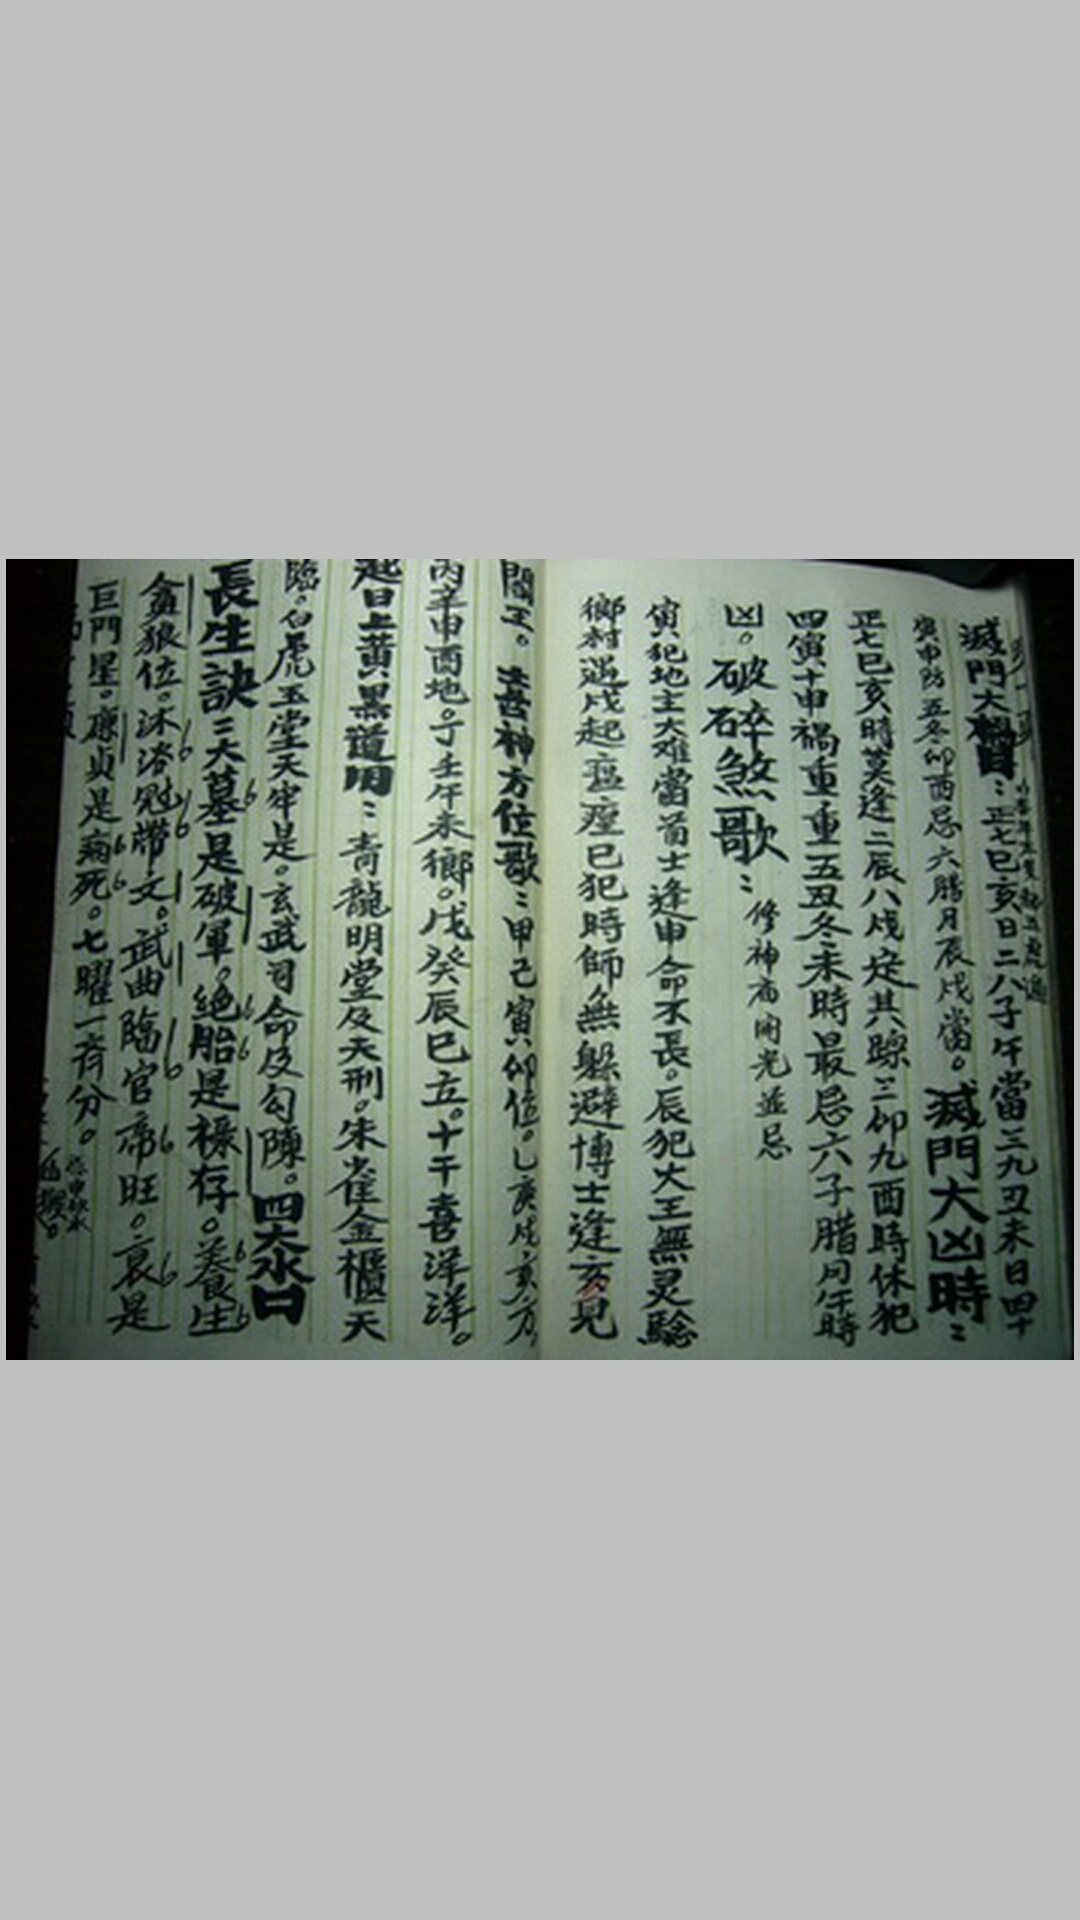 滅門大禍日：正七巳亥日二八子午當三九丑未日四十
寅申防五冬卯酉忌六腊月辰戌當。滅門大凶時：
正七巳亥時莫逢二辰八戌定其踪三卯九酉時休犯
四寅十申禍重重五丑冬未時最忌六子腊月午時
凶。破碎煞歌：修神廟開光並忌
寅犯地主大难當首士逢申命不長。辰犯大王無灵騐
鄉村遇戌起瘟瘟巳犯時師無躲避博士逢亥見
閻王。喜神方位歌：甲己寅卯位。乙庚戌亥方，
丙辛申酉地。丁壬午未鄉。戊癸辰巳立。十干喜洋洋。
起日上黃黑道用：青龍明堂及天刑。朱雀金櫃天
臨。白虎玉堂天牢是。玄武司命及勾陳。四大水口
長生訣三天墓是破軍。絕胎是祿存。养生
貪狼位。沐浴冠帶文。武曲臨官帝旺。衰是
巨門星。廉貞是病死。七曜一齐分。